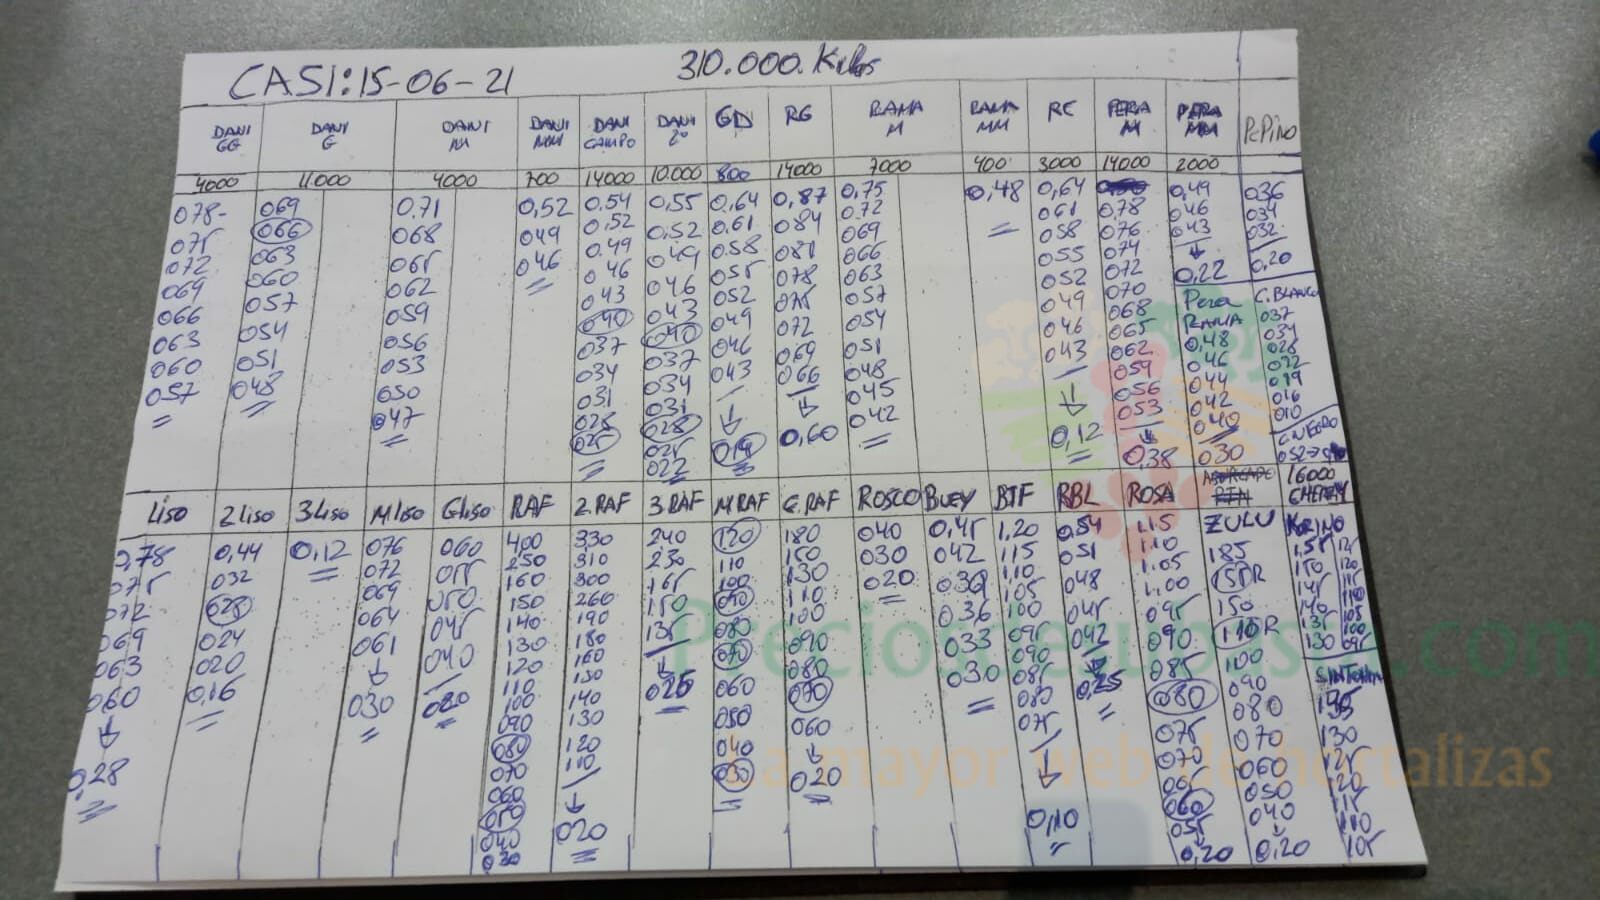 CASI: 15-06-21 310.000. Kilos
DANI GG DANI G DANI M DANI MM DANI CAMPO DANI 2º GD RG RAMA M RAMA MM RC PERA M PERA MM PEPINO
4000 11.000 4000 700 14000 10.000 800 14000 7000 400 3000 14000 2000
078- 069 0.71 0,52 0.54 0,55 0,64 0,87 0,75 0,48 0,64 0,49 036
075 066 068 049 0,52 0,52 0.61 084 0.72 061 0,78 046 034
072 063 065 046 0.49 049 0.58 081 069 058 076 043 032
069 060 062 046 046 055 078 066 055 074 0,22 0,20
066 057 059 043 043 052 075 063 052 072 Pera RAMA C. BLANCO
063 054 056 040 040 049 072 057 049 070 0,48 037
060 051 053 037 037 046 069 054 046 068 046 034
057 048 050 034 034 043 066 051 043 065 044 028
047 031 031 019 0,60 048 0,12 062 042 022
028 028 045 059 040 019
025 025 042 056 030 016
022 053 010
0,38 C. NEGRO
LISO 2 LISO 3 LISO M. LISO G. LISO RAF 2. RAF 3. RAF M. RAF C. RAF ROSCO BUEY BTF RBL ROSA ZULU 16000 CHERRY
0,78 0,44 0,12 076 060 400 330 240 120 180 040 0,45 1,20 0,54 1.15 185 KORINO
075 032 072 055 250 310 230 110 150 030 042 115 051 1.10 150R 1.55 125
072 028 069 050 160 300 165 100 130 020 039 1,10 048 1.05 150 150 120
069 024 064 045 150 260 150 090 110 036 105 045 1.00 110R 145 115
063 020 061 040 140 190 135 080 100 033 100 042 095 100 140 110
060 0,16 030 020 130 180 025 070 090 030 095 0,25 090 090 135 105
0,28 120 160 060 080 090 085 080 130 100
110 150 050 070 085 080 070 095
100 140 040 060 080 075 060 SINTONIA
090 130 030 0,20 075 070 050
080 120 0,10 065 040 130
070 110 060 0,20 125
060 020 055 120
050 0,20 115
040 110
030 105
Preciosdesubasta.com
La mayor web de hortalizas